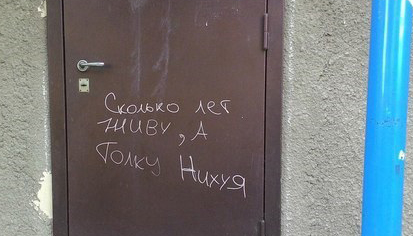 Сколько лет
живу, А
Толку Нихуя